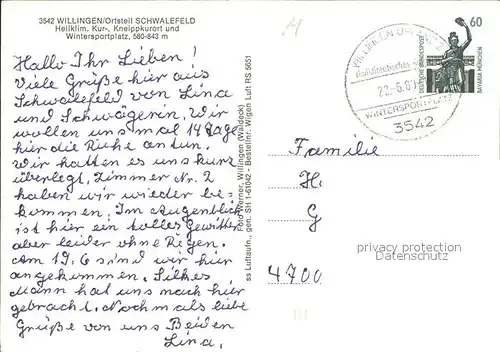 3542 WILLINGEN/Ortsteil SCHWALEFELD
Heilklim. Kur-, Kneippkurort und
Wintersportplatz, 580-843 m
Hallo Ihr Lieben!
Viele Grüße hier aus
Schwalefeld von Lina
und Schwägerin. Wir
wollen uns mal 14 Tage
hier die Ruhe antun.
Wir hatten es uns kurz
überlegt, Zimmer Nr. 2
haben wir wieder be-
kommen. Im Augenblick
ist hier ein tolles Gewitter
aber leider ohne Regen.
Am 19.6 sind wir hier
angekommen. Silkes
Mann hat uns nach hier
gebracht. Nochmals liebe
Grüße von uns Beiden
Lina.
Foto Werner, Willingen (Waldeck)
ss Luftaufn., gen. SH 1-61042 - Bestellnr. Wigen Luft RS 6651
WILLINGEN
Heilklimatisches
22.-6.8
WINTERSPORTPLATZ
3542
60
DEUTSCHE BUNDESPOST
BAVARIA MÜNCHEN
Familie
H.
G
4700
privacy protection
Datenschutz